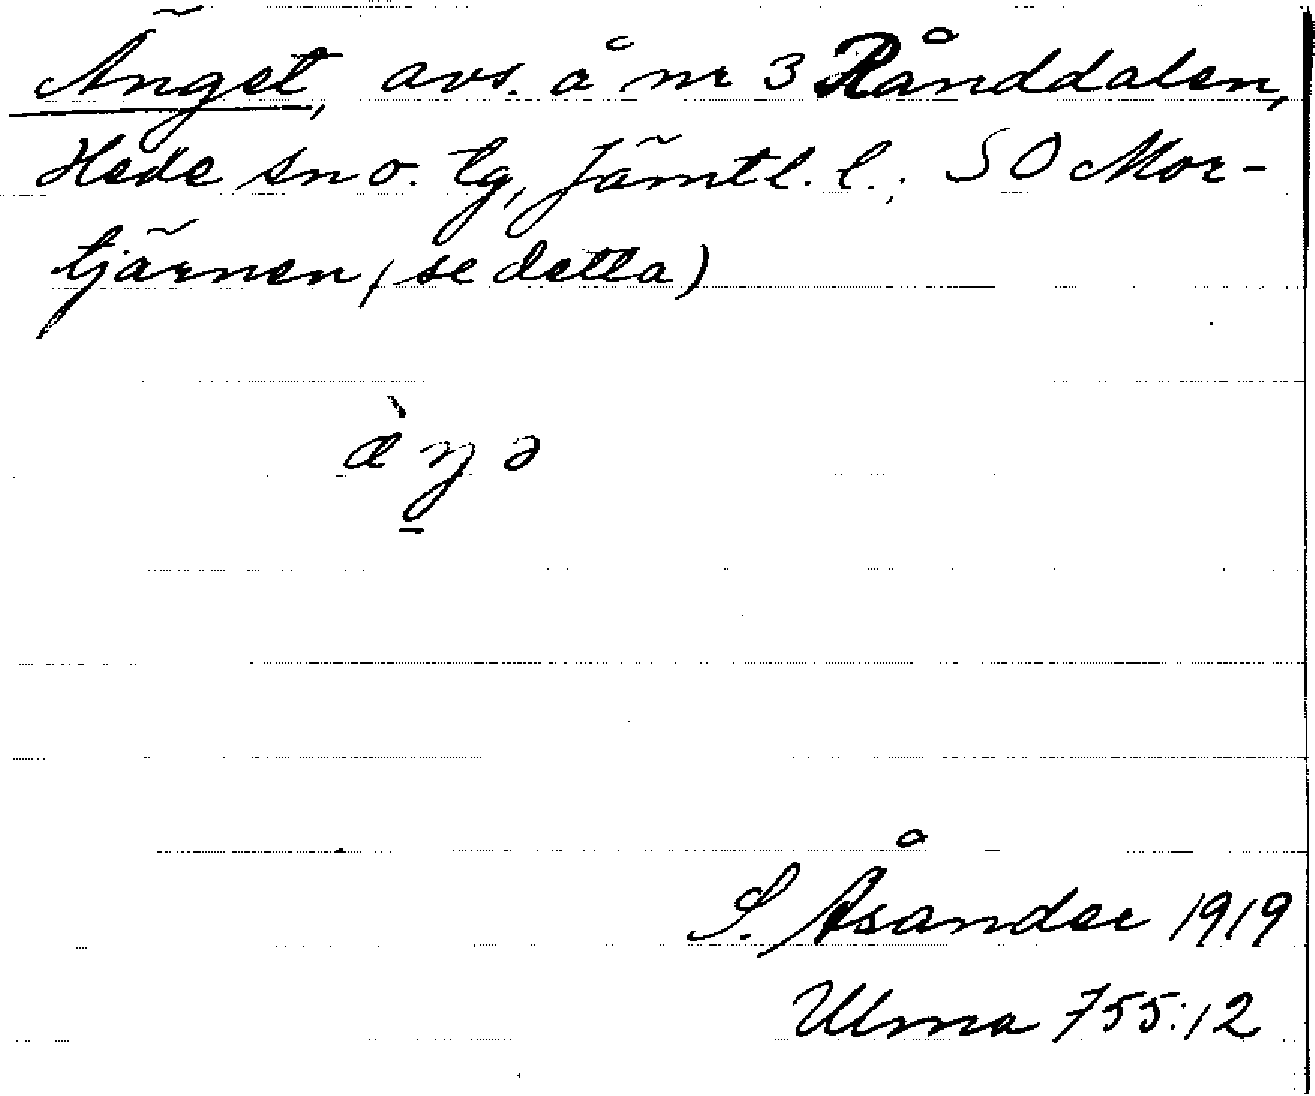 Änget, avs. å nr 3 Rånddalen,
Hede sn o. tg, Jämtl. l., SO Mor-
tjärnen (se detta)
æ̀ŋə
S. Åsander 1919
Ulma 755:12